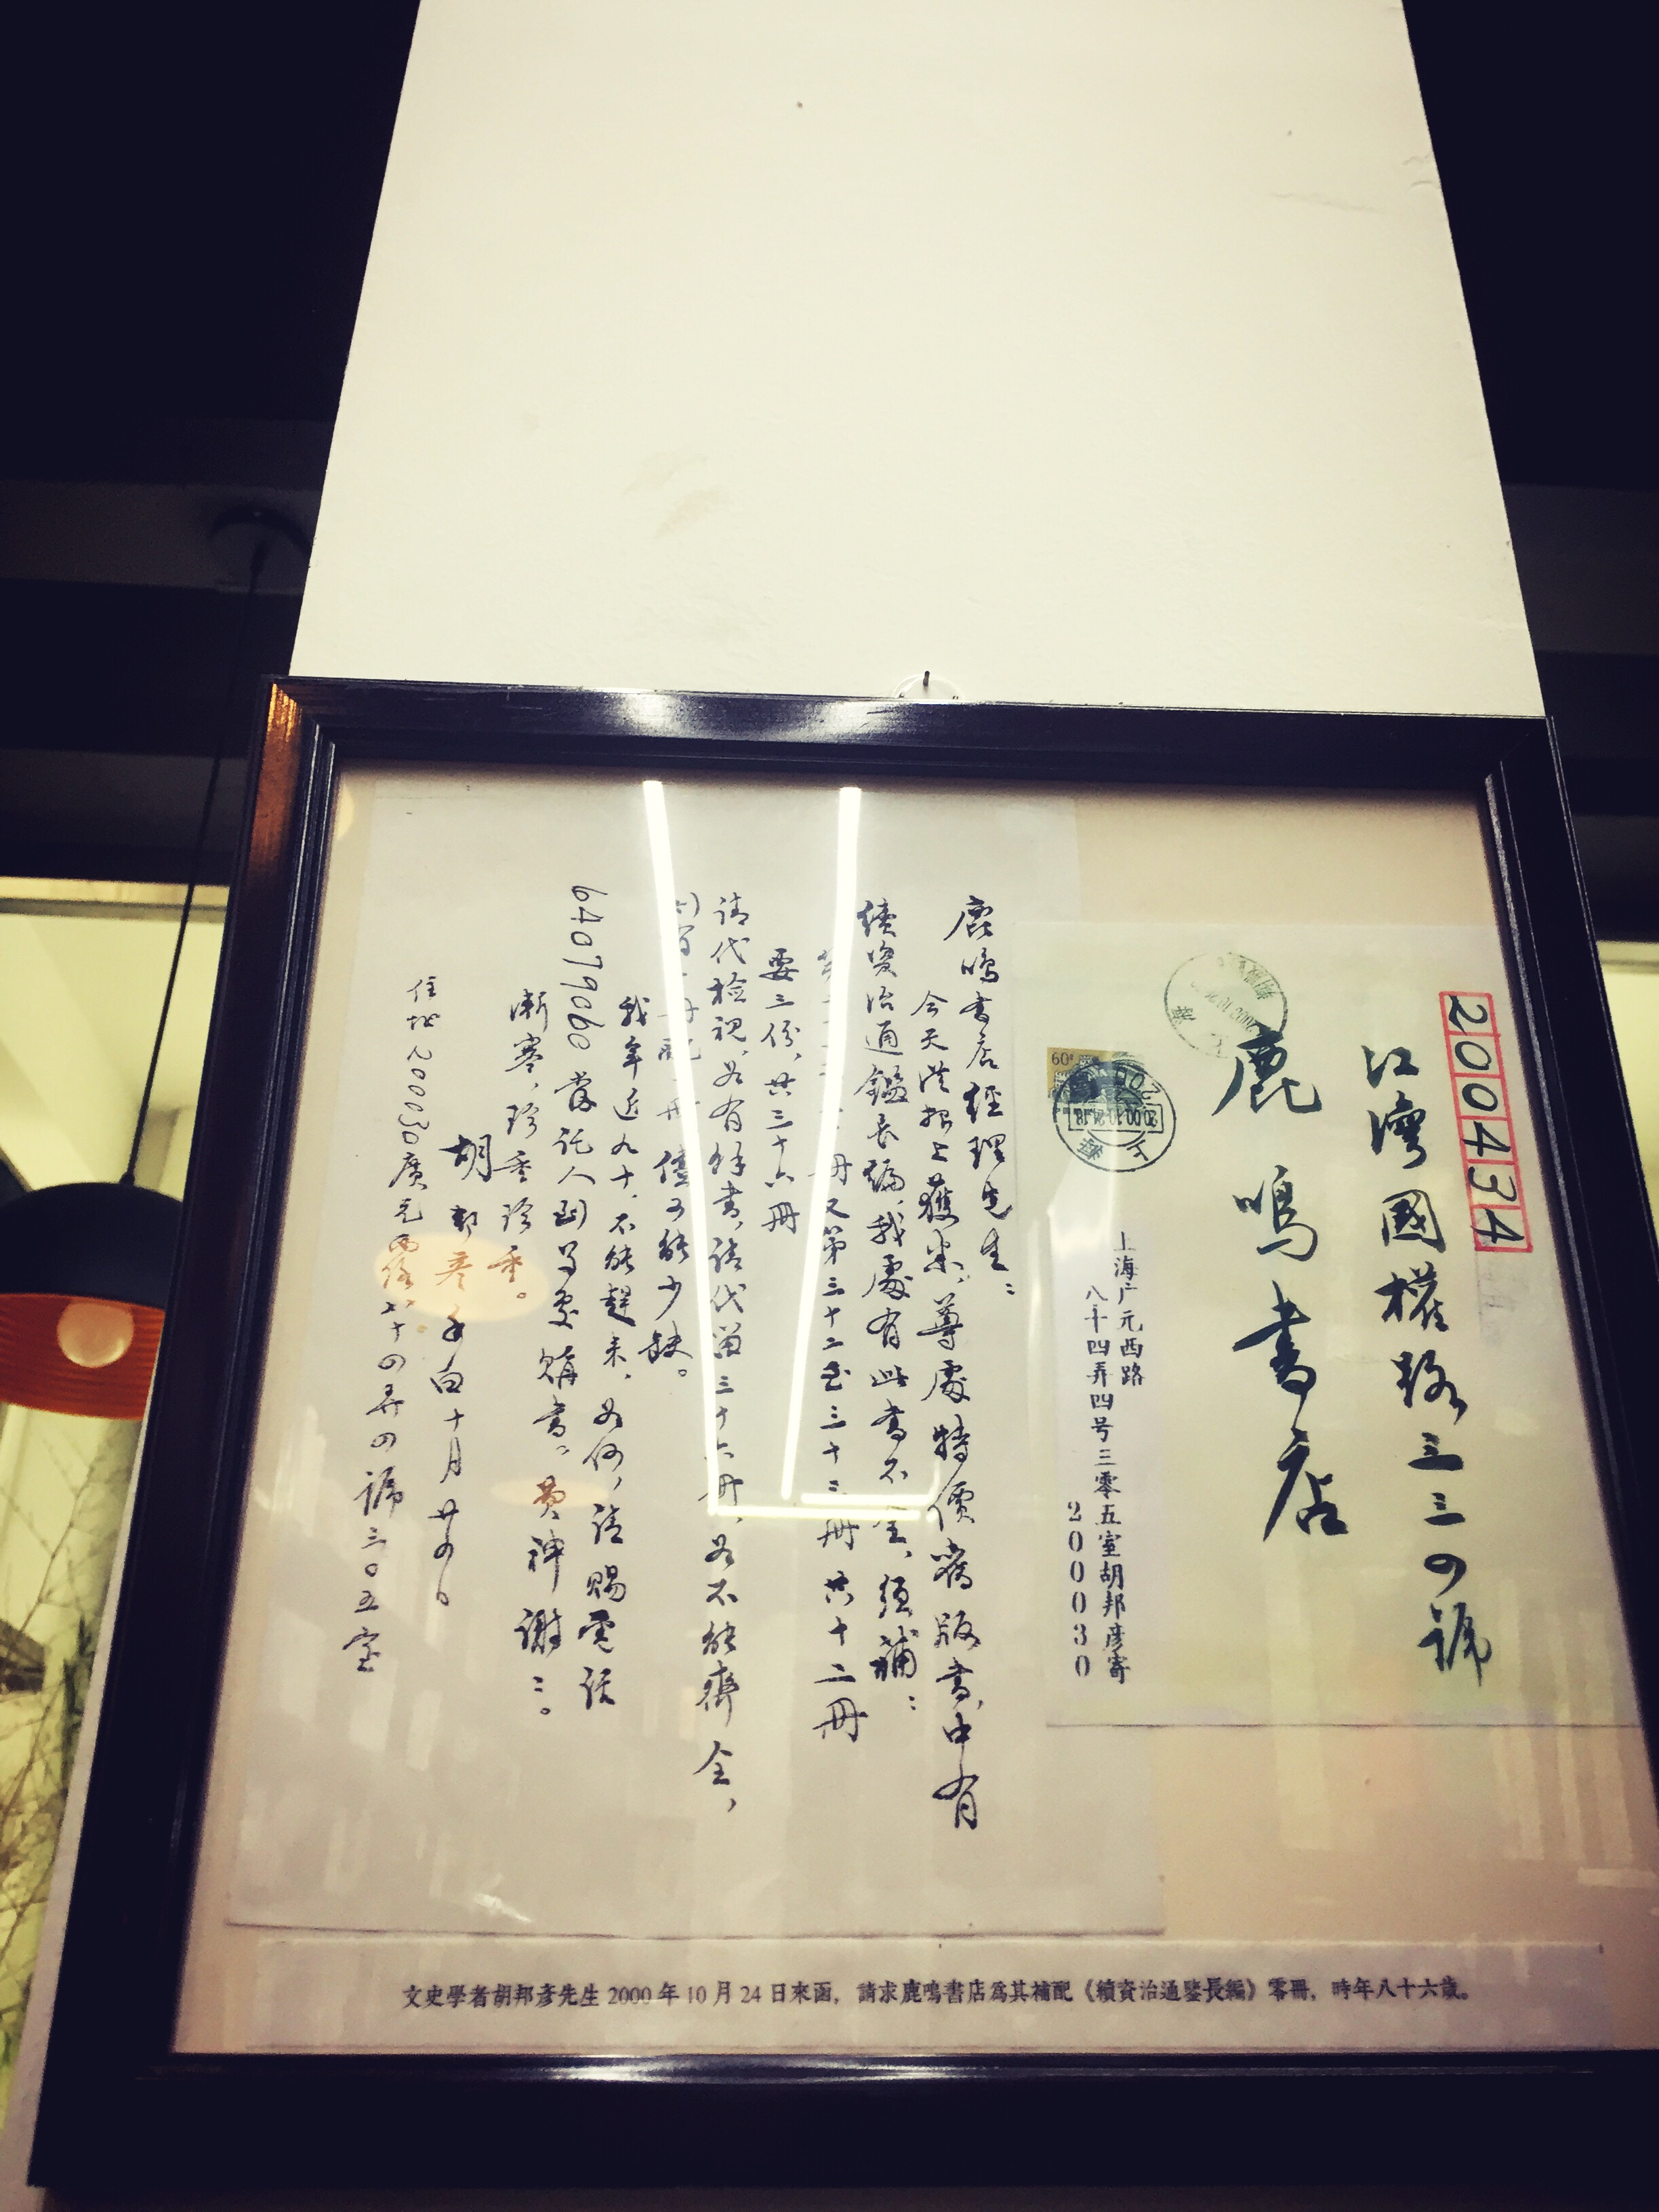 200434
江灣國權路三三四號
鹿鳴書店
上海广元西路
八十四弄四号三零五室胡邦彦寄
200030
60
鹿鳴書店經理先生：
今天從報上獲悉，尊處特價舊版書，中有
續資治通鑑長編，我處有此書不全，須補：
冊又第三十二至三十三冊共十二冊
要三份，共三十六冊
請代檢視，如有餘書，請代留三十六冊，如不能齊全，
冊僅不能少缺。
我年近九十，不能趕來，如何，請賜電話
64079060當託人到尊處購書。費神謝：。
漸寒，珍重珍重。
胡邦彦手白十月廿四日
住址200030廣元西路八十四弄四號三〇五室
文史學者胡邦彦先生2000年10月24日來函，請求鹿鳴書店為其補配《續資治通鑒長編》零冊，時年八十六歲。